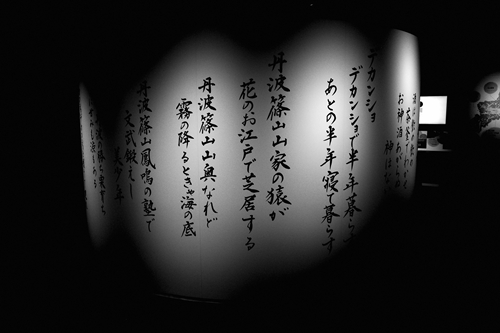 お神酒あがらぬ
神はない
デカンショ
デカンショで半年暮らす
あとの半年寝て暮らす
丹波篠山山家の猿が
花のお江戸で芝居する
丹波篠山山奥なれど
霧の降るときゃ海の底
丹波篠山鳳鳴の塾で
文武鍛えし
美少年